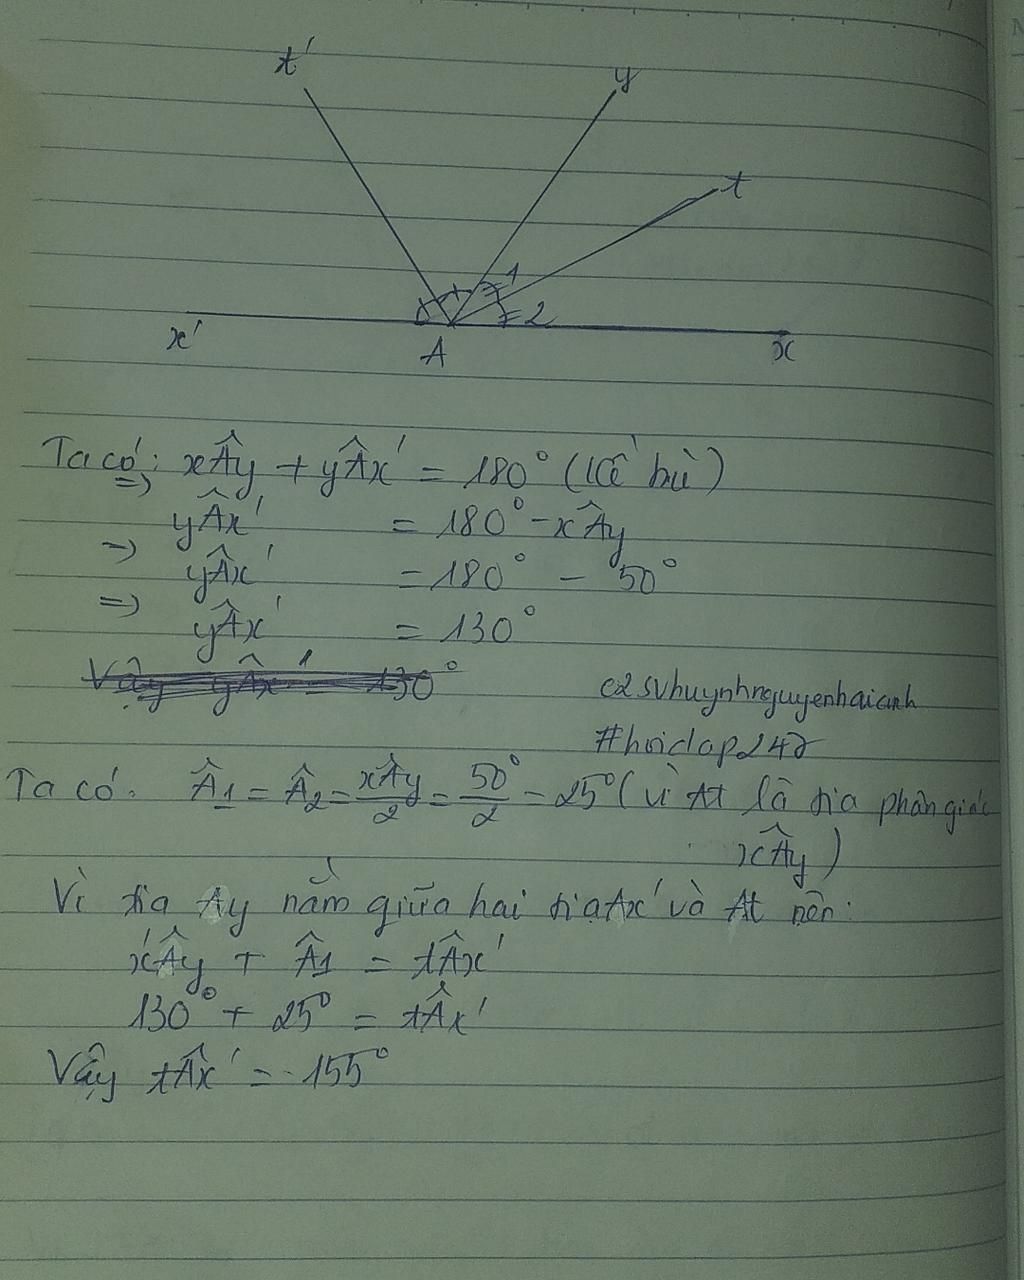 t'
y
t
1
2
x'
A
x
Ta có: xÂy + yÂx' = 180° (kề bù)
=> yÂx' = 180° - xÂy
=> yÂx' = 180° - 50°
=> yÂx' = 130°
Vậy yÂx' = 130°
c2svhuynhnguyenhaianh
#hoidap247
Ta có: Â1 = Â2 = xÂy/2 = 50°/2 = 25° (vì At là tia phân giác
xÂy)
Vì tia Ay nằm giữa hai tia Ax' và At nên:
x'Ây + Â1 = tÂx'
130° + 25° = tÂx'
Vậy tÂx' = 155°